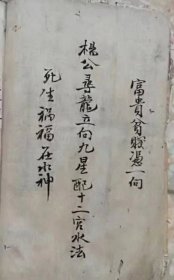 富貴貧賤憑一向
楊公尋龍立向九星配十二宮水法
死生禍福在水神